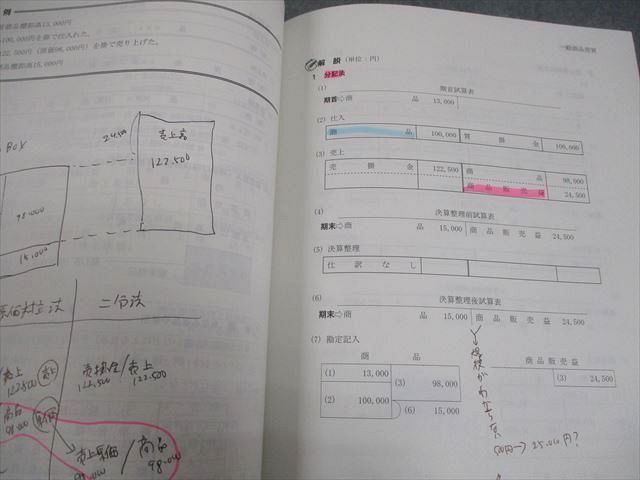 例
期首商品棚卸高13,000円
100,000円を掛で仕入れた。
122,500円（原価98,000円）を掛で売り上げた。
商品棚卸高15,000円
BOX
24,500
売上高
122,500
98,000
15,000
原価対立法
二分法
売上
122,500
売上
売掛金/売上
122,500 122,500
商品
98,000
原価
売上原価/商品
98,000 98,000
一般商品売買
解説（単位：円）
1 分記法
(1) 期首試算表
期首⇨商品 13,000
(2) 仕入
商品 100,000 買掛金 100,000
(3) 売上
売掛金 122,500 商品 98,000
商品販売益 24,500
(4) 決算整理前試算表
期末⇨商品 15,000 商品販売益 24,500
(5) 決算整理
仕訳なし
(6) 決算整理後試算表
期末⇨商品 15,000 商品販売益 24,500
(7) 勘定記入
商品
(1) 13,000
(3) 98,000
(2) 100,000
(6) 15,000
商品販売益
(3) 24,500
規模がわからない
→25,000円?